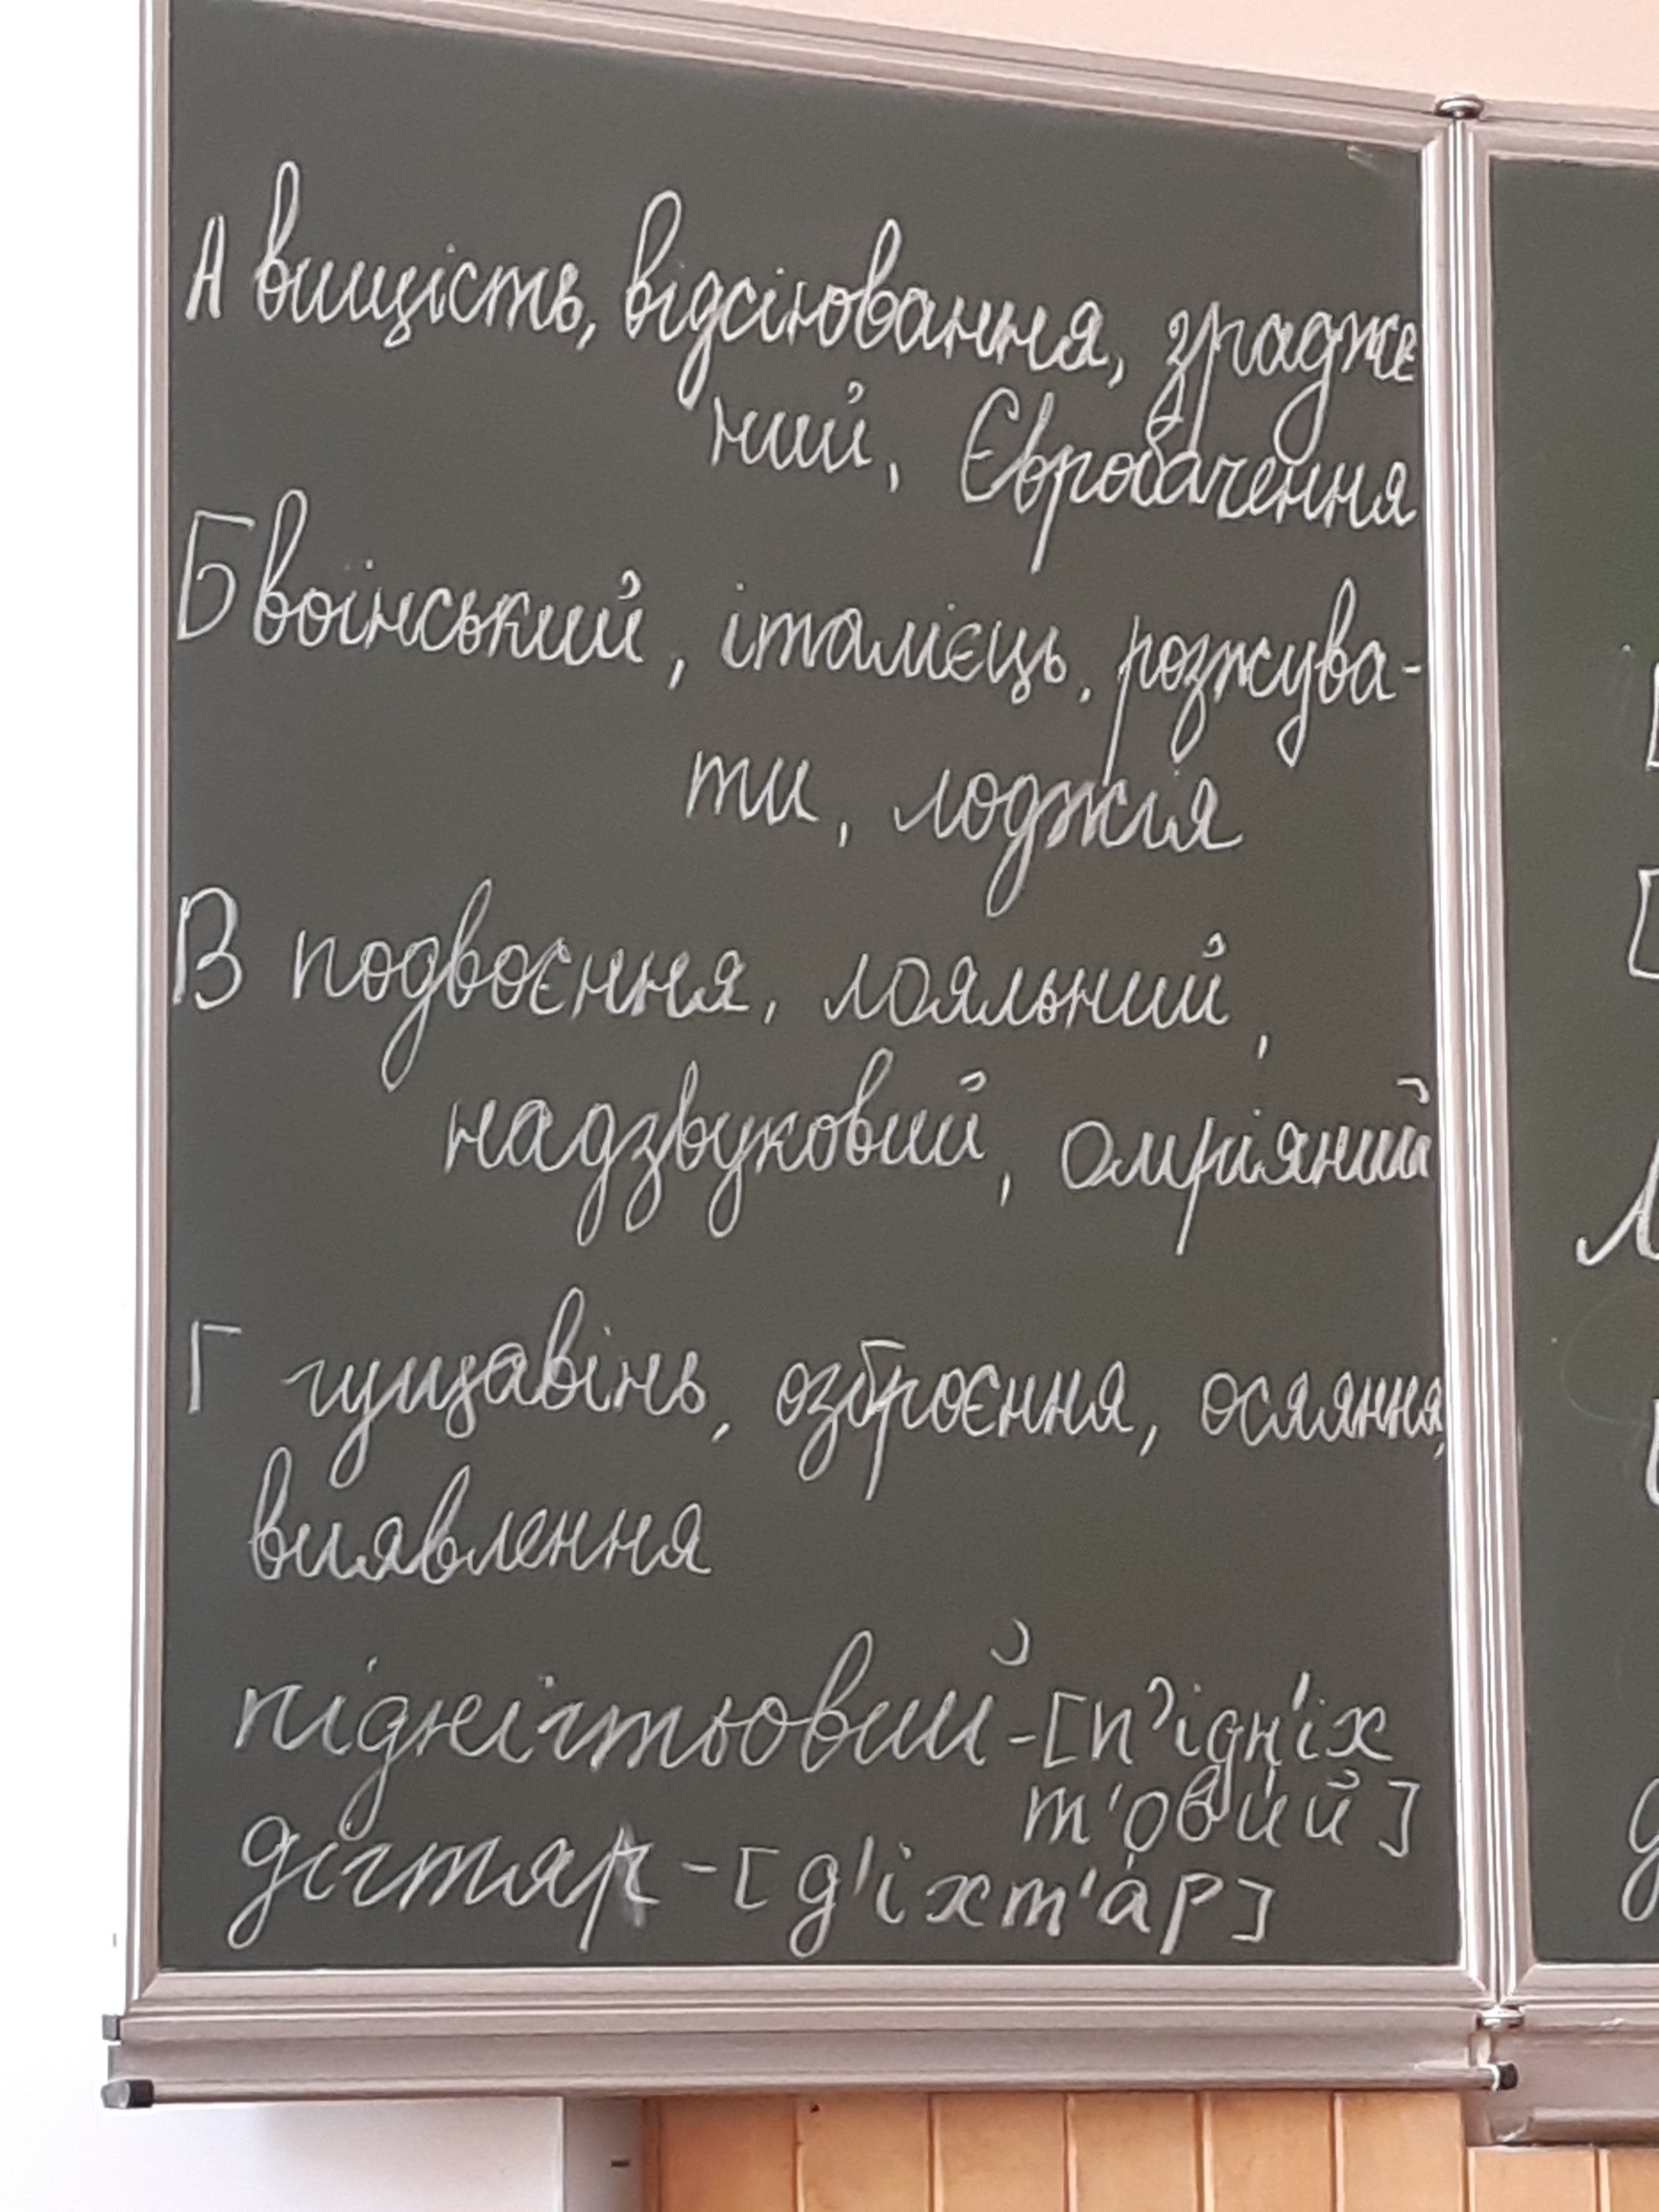 А вищість, відсіювання, зрадже
ний, Євробачення
Б воїнський, італієць, розжува-
ти, лоджія
В подвоєння, лояльний,
надзвуковий, омріяний
Г гущавінь, озброєння, осяяння,
виявлення
піднігтьовий-[п’ідн'іх
т'овий]
дігтяр-[д'іхт'ар]